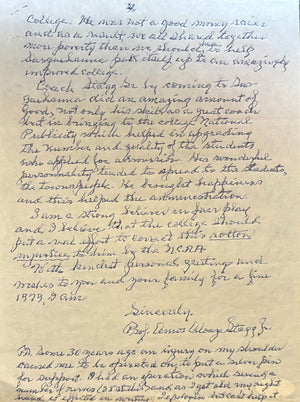 2.
College. He was not a good money raiser
and as a result, we all shared together
more poverty than we should to help
Susquehanna pull itself up to an amazingly
improved college.
Coach Stagg Sr by coming to Sus-
quehanna did an amazing amount of
good, not only his skill as a great coach
but to bringing to the college National
Publicity which helped in upgrading
the number and quality of the students
who applied for admission. His wonderful
personality tended to spread to the students,
the townspeople. He brought happiness
and thus helped the administration.
I am a strong believer in fair play
and I believe that the college should
put a real effort to correct this rotten
injustice to him by the NCAA
With kindest personal greetings and
wishes to you and your family for a fine
1979, I am
Sincerely,
Amos Alonzo Stagg Jr.
P.S. Some 30 years ago an injury on my shoulder
caused me to be operated on to put a silver pin
for support. I had an operation which severed a
number of nerves and as I get old my right
hand is effected in writing. I apologize but can't help it